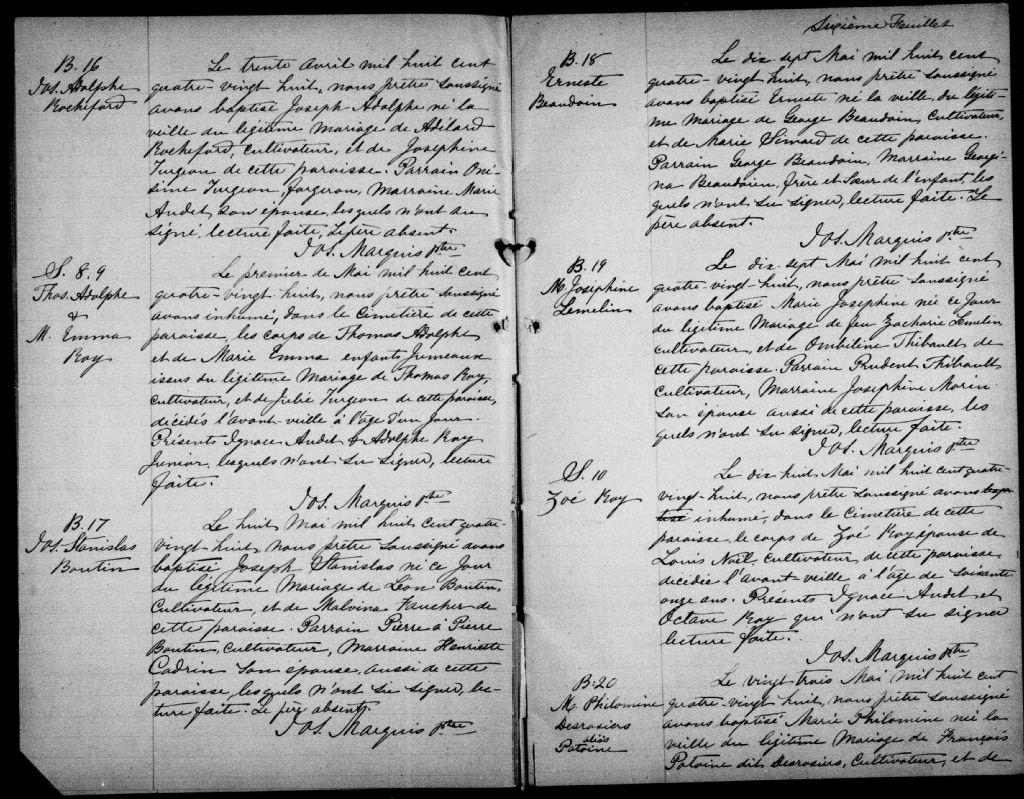 B. 16
Jos. Adolphe
Rocheford
Le trente Avril mil huit cent
quatre-vingt huit, nous prêtre soussigné
avons baptisé Joseph Adolphe né la
veille du légitime Mariage de Adélard
Rocheford, cultivateur, et de Josephine
Turgeon de cette paroisse. Parrain Oné-
sime Turgeon, forgeron, Marraine Marie
Audet son épouse, lesquels n'ont su
signé, lecture faite, le père absent.
Jos. Marquis ptre
S. 8. 9
Thos. Adolphe
&
M. Emma
Roy
Le premier de Mai mil huit cent
quatre-vingt-huit, nous prêtre soussigné
avons inhumé, dans le Cimetière de cette
paroisse, les corps de Thomas Adolphe
et de Marie Emma enfants Jumeaux
issus du légitime Mariage de Thomas Roy,
cultivateur, et de Julie Turgeon de cette paroisse,
décédés l'avant-veille à l'âge d'un Jour.
Présents Ignace Audet & Adolphe Roy
Junior, lesquels n'ont su signer, lecture
faite.
Jos. Marquis ptre
B. 17
Jos. Stanislas
Boutin
Le huit Mai mil huit cent quatre-
vingt huit, nous prêtre soussigné avons
baptisé Joseph Stanislas né ce Jour
du légitime Mariage de Léon Boutin,
Cultivateur, et de Malvina Faucher de
cette paroisse. Parrain Pierre à Pierre
Boutin, Cultivateur, Marraine Henriette
Cadrin son épouse, aussi de cette
paroisse, lesquels n'ont su signer, lec-
ture faite. Le père absent.
Jos. Marquis ptre
Sixième Feuillet
B. 18
Erneste
Beaudoin
Le dix sept Mai mil huit cent
quatre-vingt huit, nous prêtre soussigné
avons baptisé Erneste né la veille du légiti-
me Mariage de George Beaudoin, Cultivateur,
et de Marie Simard de cette paroisse.
Parrain George Beaudoin, Marraine Georgi-
na Beaudoin, frère et Sœur de l'enfant, les
quels n'ont su signer, lecture faite. Le
père absent.
Jos. Marquis ptre
B. 19
M. Josephine
Lemelin
Le dix-sept Mai mil huit cent
quatre-vingt-huit, nous prêtre soussigné
avons baptisé Marie Josephine née ce Jour
du légitime Mariage de feu Zacharie Lemelin
cultivateur, et de Ombéline Thibault de
cette paroisse. Parrain Prudent Thibault
cultivateur, Marraine Josephine Morin
son épouse aussi de cette paroisse, les
quels n'ont su signer, lecture faite.
Jos. Marquis ptre
S. 10
Zoé Roy
Le dix huit Mai mil huit cent quatre-
vingt-huit, nous prêtre soussigné avons bap
tisé inhumé, dans le Cimetière de cette
paroisse le corps de Zoé Roy épouse de
Louis Noël, cultivateur, de cette paroisse
décédée l'avant veille à l'âge de soixante
onze ans. Présents Ignace Audet et
Octave Roy qui n'ont su signer
lecture faite.
Jos. Marquis ptre
B. 20
M. Philomine
Desrosiers
aliàs
Patoine
Le vingt trois Mai mil huit cent
quatre-vingt huit, nous prêtre soussigné
avons baptisé Marie Philomine née la
veille du légitime Mariage de François
Patoine dit Desrosiers, cultivateur, et de